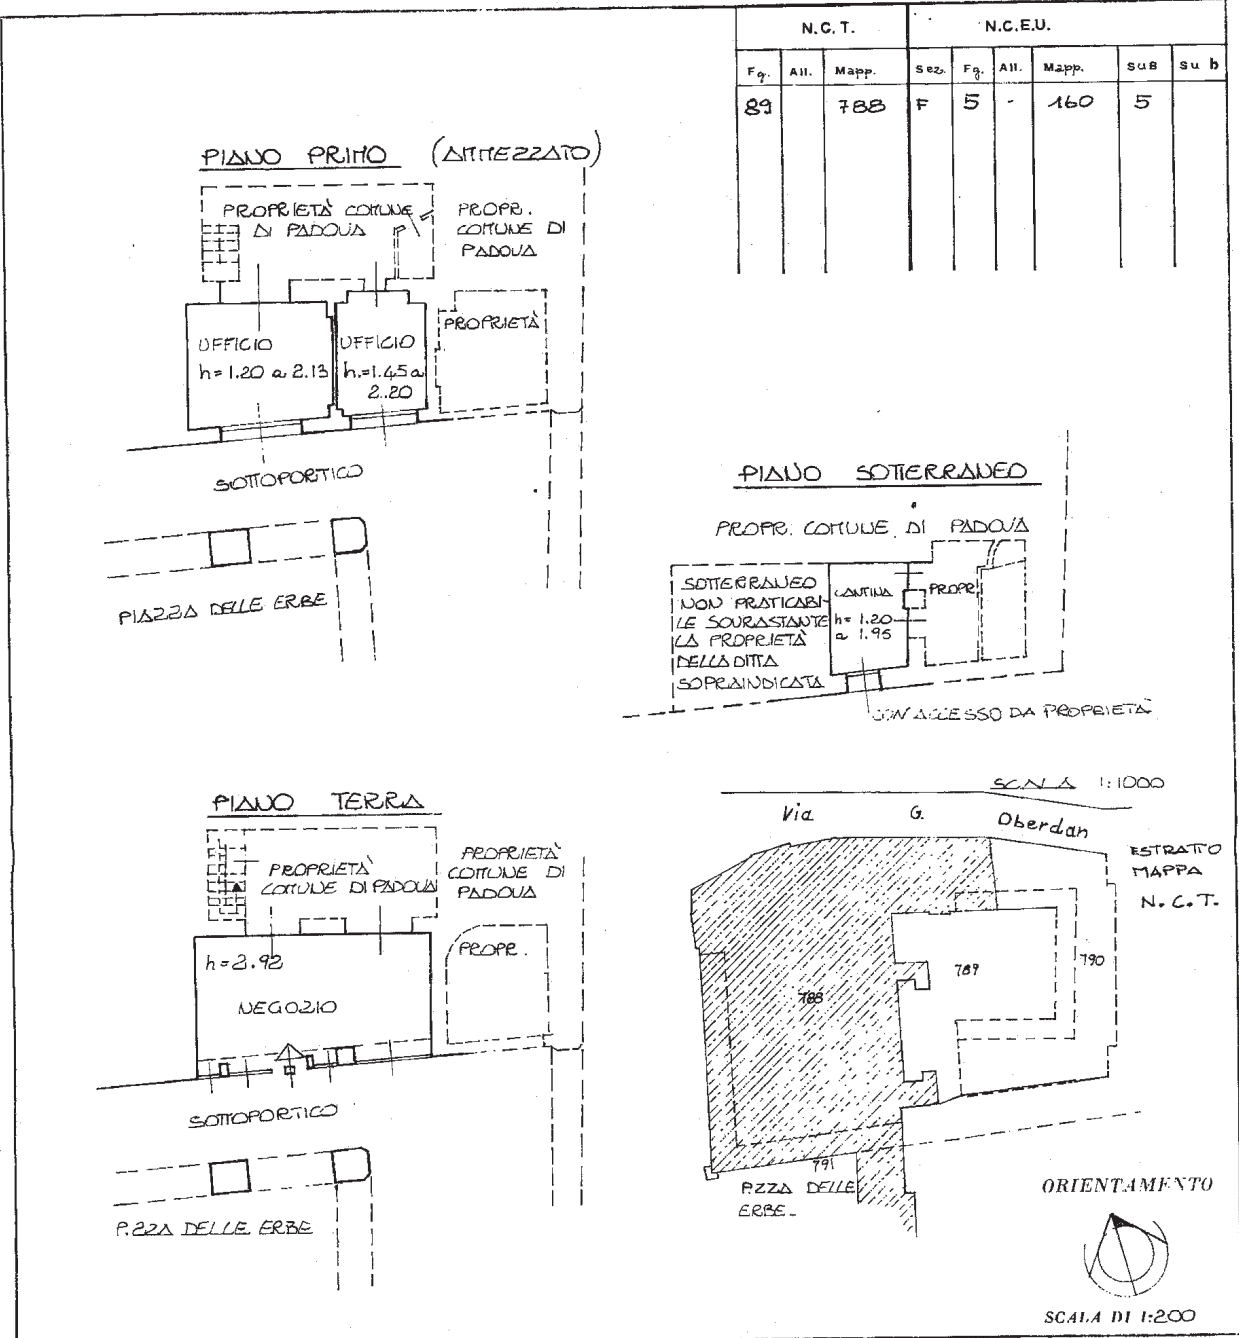 N.C.T. N.C.E.U.
Fg. All. Mapp. Sez. Fg. All. Mapp. SUB Sub
89 788 F 5 - 160 5
PIANO PRIMO (AMMEZZATO)
PROPRIETÀ COMUNE
DI PADOVA
PROPR.
COMUNE DI
PADOVA
UFFICIO
h=1.20 a 2.13
UFFICIO
h.=1.45 a
2.20
PROPRIETÀ
SOTTOPORTICO
PIAZZA DELLE ERBE
PIANO SOTTERRANEO
PROPR. COMUNE DI PADOVA
SOTTERRANEO
NON PRATICABI-
LE SOVRASTANTE
LA PROPRIETÀ
DELLA DITTA
SOPRAINDICATA
CANTINA
h=1.20
a 1.95
PROPR.
CON ACCESSO DA PROPRIETÀ
PIANO TERRA
PROPRIETÀ
COMUNE DI PADOVA
PROPRIETÀ
COMUNE DI
PADOVA
h=2.92
NEGOZIO
PROPR.
SOTTOPORTICO
P.ZZA DELLE ERBE
SCALA 1:1000
Via G. Oberdan
ESTRATTO
MAPPA
N.C.T.
788
789
790
791
P.ZZA DELLE
ERBE.
ORIENTAMENTO
SCALA DI 1:200